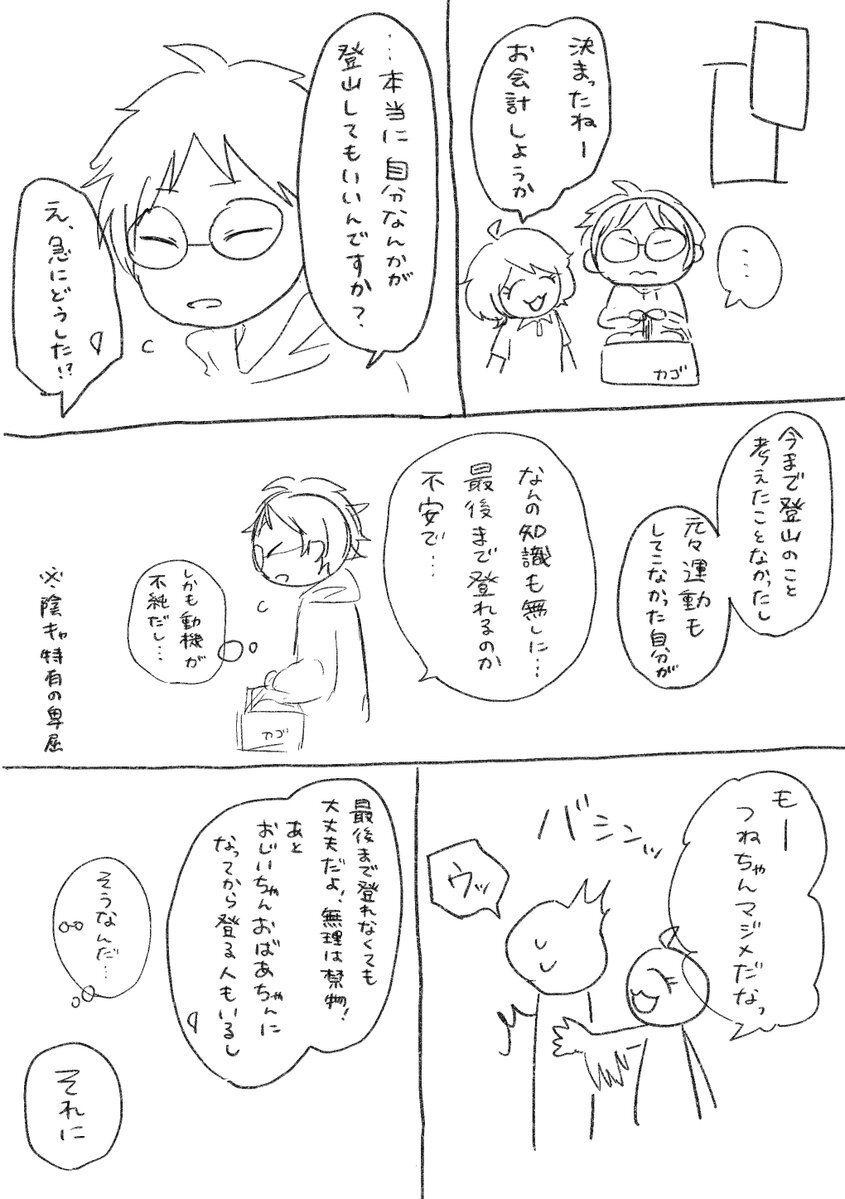 決まったねー
お会計しようか
…
カゴ
…本当に自分なんかが
登山してもいいんですか?
え、急にどうした!?
今まで登山のこと
考えたことなかったし
元々運動も
してこなかった自分が
なんの知識も無しに…
最後まで登れるのか
不安で…
しかも動機が
不純だし…
カゴ
※陰キャ特有の卑屈
もー
つねちゃんマジメだなっ
バシンッ
ウッ
最後まで登れなくても
大丈夫だよ!無理は禁物!
あと
おじいちゃんおばあちゃんに
なってから登る人もいるし
そうなんだ…
それに